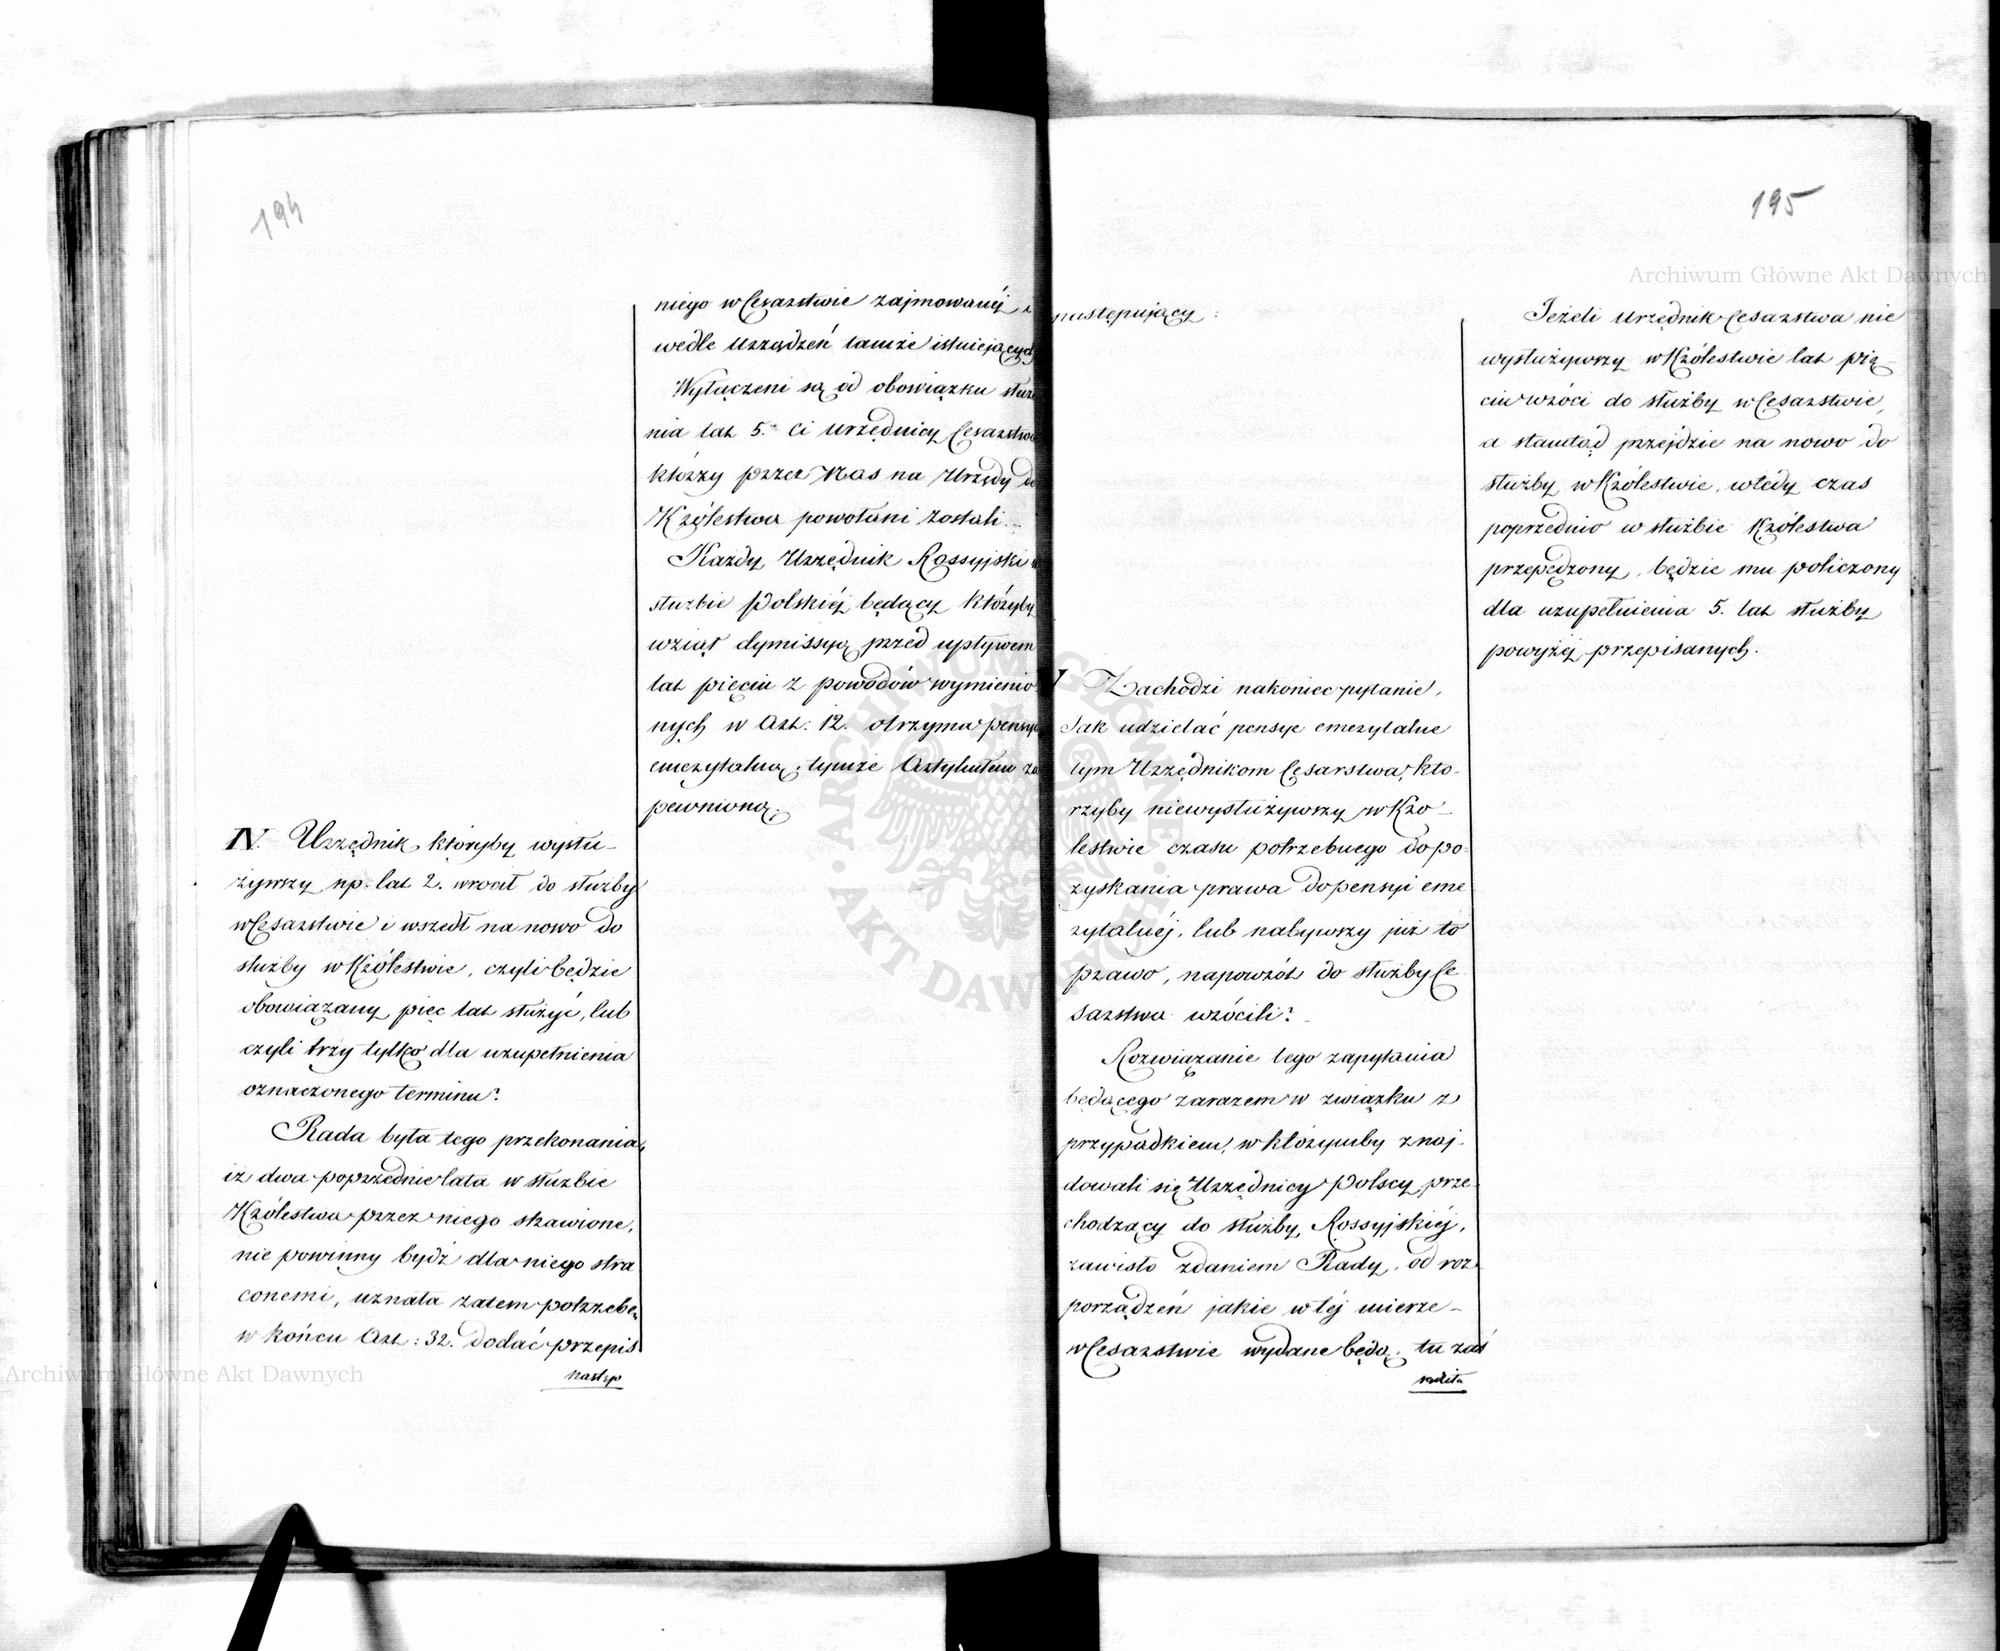 194
niego w Cesarstwie zajmowanéj,
wedle Urządzeń tamże istniejących
Wyłączeni są od obowiązku służe
nia lat 5. ci Urzędnicy Cesarstwa
którzy przez Nas na Urzędy do
Królestwa powołani zostali.
Każdy Urzędnik Rossyjski w
służbie Polskiéj będący któryby
wziął dymissyą przed upływem
lat pięciu z powodów wymienio
nych w Art: 12. otrzyma pensyę
emerytalną, tymże Artykułem za
pewnioną.
IV. Urzędnik, któryby wysłu-
żywszy np. lat 2. wrócił do służby
w Cesarstwie i wszedł na nowo do
służby w Królestwie, czyli będzie
obowiązany pięć lat służyć, lub
czyli trzy tylko dla uzupełnienia
oznaczonego terminu?
Rada była tego przekonania,
iż dwa poprzednie lata w służbie
Królestwa przez niego strawione,
nie powinny bydź dla niego stra
conemi, uznała zatem potrzebę,
w końcu Art: 32. dodać przepis
następ
195
następujący:
Jeżeli Urzędnik Cesarstwa nie
wysłużywszy w Królestwie lat pię-
ciu wróci do służby w Cesarstwie,
a stamtąd przejdzie na nowo do
służby w Królestwie, wtedy czas
poprzednio w służbie Królestwa
przepędzony, będzie mu policzony
dla uzupełnienia 5. lat służby
powyżéj przepisanych.
V Zachodzi nakoniec pytanie,
Jak udzielać pensye emerytalne
tym Urzędnikom Cesarstwa, któ-
rzyby niewysłużywszy w Kró-
lestwie czasu potrzebnego do po-
zyskania prawa do pensyi eme
rytalnéj, lub nabywszy już to
prawo, napowrót do służby Ce
sarstwa wrócili?
Rozwiązanie tego zapytania
będącego zarazem w związku z
przypadkiem, w którymby znaj-
dowali się Urzędnicy Polscy prze
chodzący do służby Rossyjskiéj,
zawisło zdaniem Rady, od roz
porządzeń jakie w téj mierze
w Cesarstwie wydane będą, tu zaś
Archiwum Główne Akt Dawnych
Archiwum Główne Akt Dawnych
ARCHIWUM GŁÓWNE AKT DAWNYCH